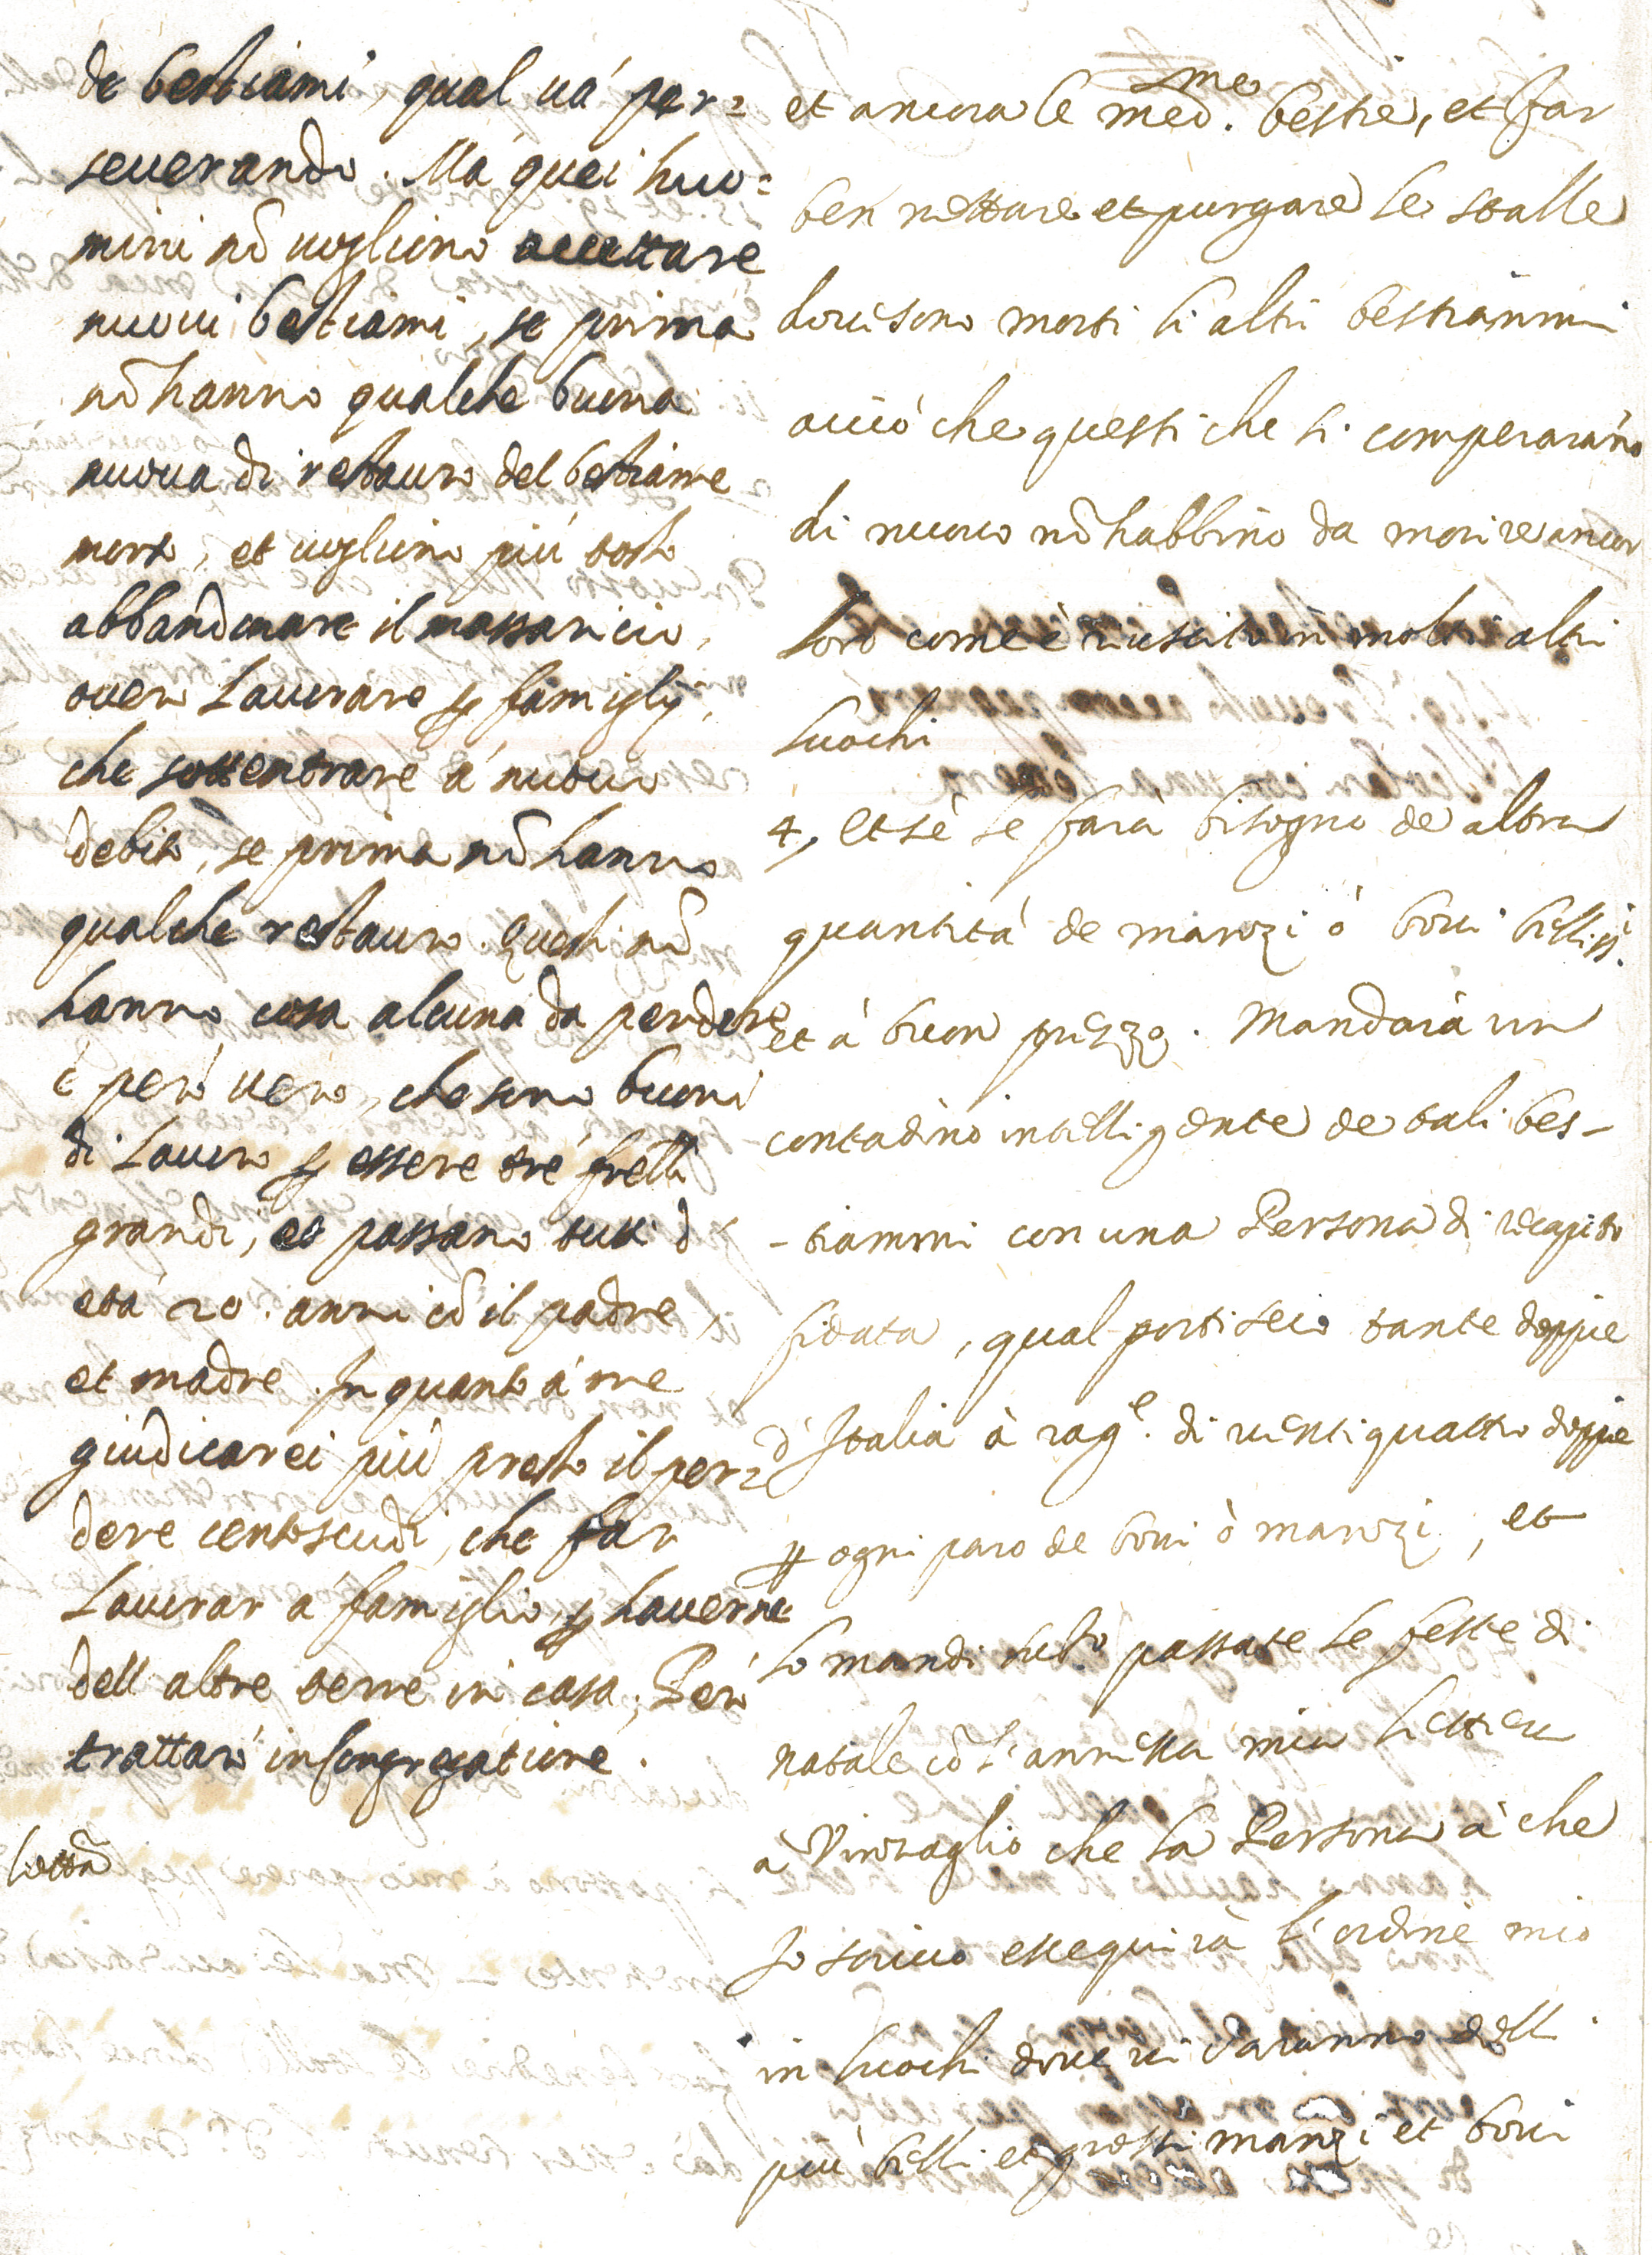 de bestiami, qual uá per=
seuerando. Má quei huo=
mini nõ uogliono accettare
nuoui bestiami, se prima
nõ hanno qualche buona
nuoua di restauro del bestiame
morto, et uogliono piú tosto
abbandonare il massaricio,
ouero Lauorare ꝑ famiglij,
che sottentrare á nuouo
debito, se prima nõ hanno
qualche restauro. Questi nõ
hanno cosa alcuna da perdere
é peró uero, che sono buoni
di Lauoro ꝑ essere tré frelli
grandi, et passano tutti d
etá 20. anni cõ il padre,
et madre. In quanto á me
giudicarei piú presto il per=
dere cento scudi, che far
Lauorar á famiglio, ꝑ hauerne
dell altre terre in casa. Peró
trattaró in Congregatione.
et ancora le med.me bestie, et far
ben nettare et purgare le stalle
doue sono morti li altri bestiammi
acciò che questi che si comperarano
di nuouo nõ habbino da morire ancor
loro come è riuscito in molti altri
luochi
4, et sè le farà bisogno de altra
quantità de manzi ò boui belliss.i
et à buon prezzo. Mandarà un
contadino intelligente de tali bes-
-tiammi con una Persona di recapito
fidata, qual porti seco tante doppie
d'Italia à rag.e di uentiquattro doppie
ꝑ ogni paro de boui ò manzi, et
lo mandi sub.o passate le feste di
natale cõ l'annessa mia lettera
à Vinzaglio che la Persona à che
Io scriuo esseguirà l'ordine mio
in luochi doue ui saranno delli
più belli et grossi manzi et boui